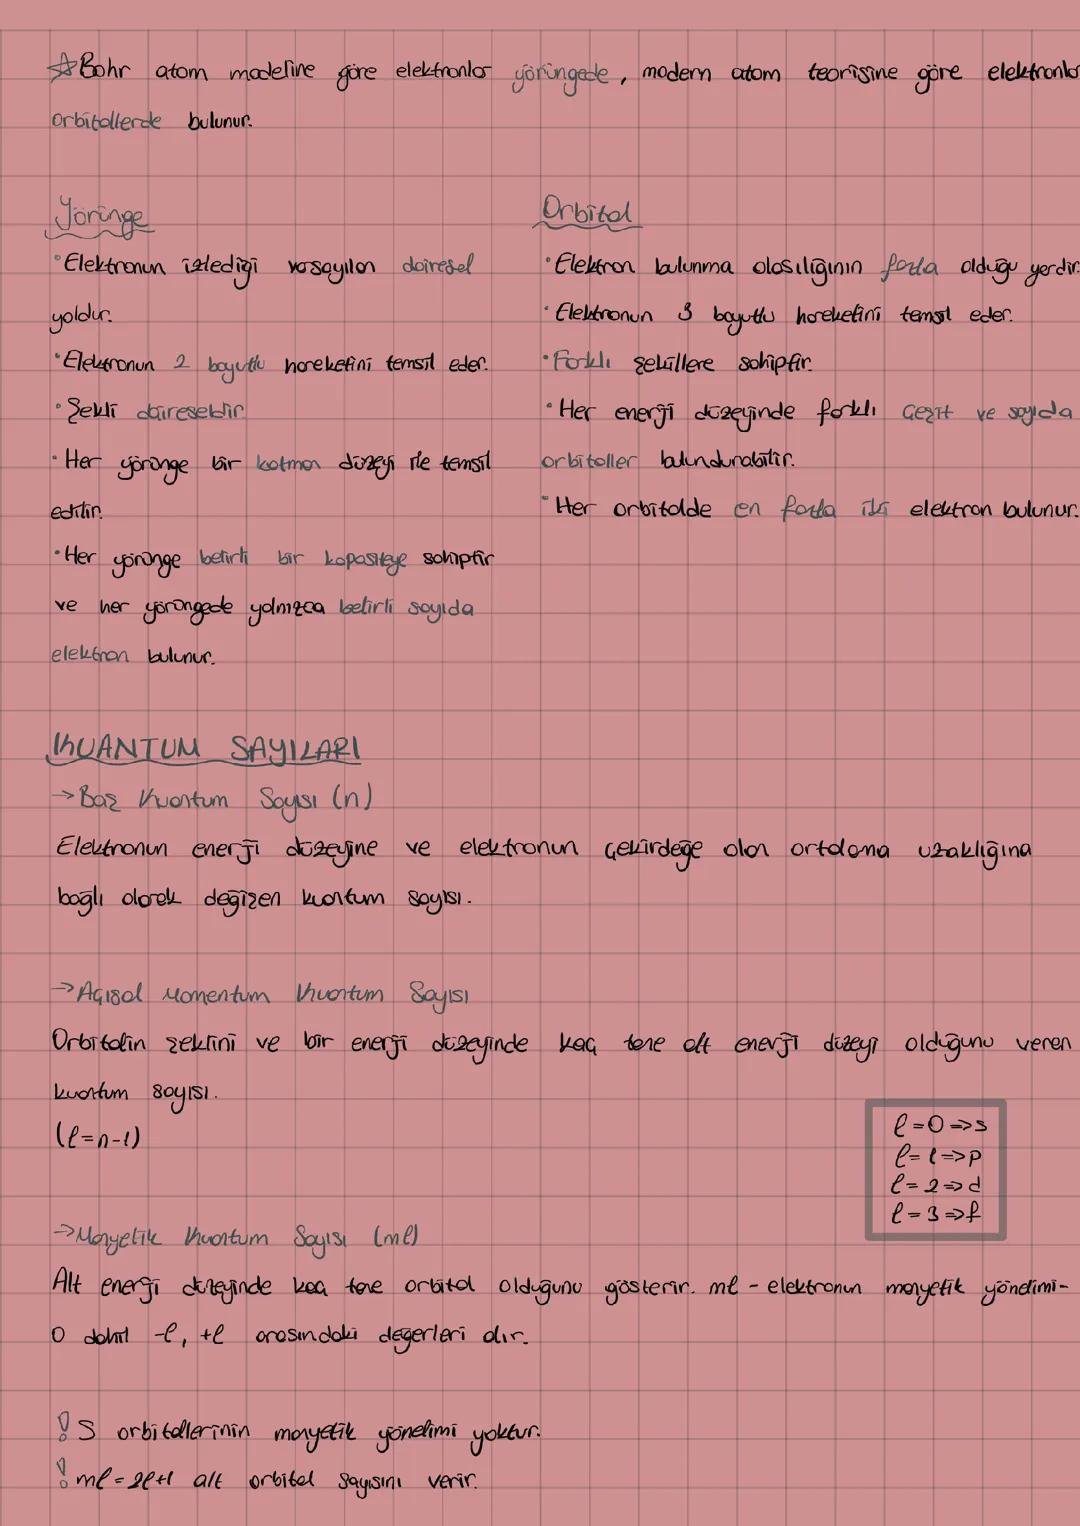 ☆Bohr atom modeline göre elektronlar yörüngede, modern atom teorisine göre elektronlar
orbitallerde bulunur.
Yörünge
•Elektronun izlediği varsayılan dairesel
yoldur.
•Elektronun 2 boyutlu hareketini temsil eder.
•Şekli daireseldir.
•Her yörünge bir katman düzeyi ile temsil
edilir.
•Her yörünge belirli bir kapasiteye sahiptir
ve her yörüngede yalnızca belirli sayıda
elektron bulunur.
Orbital
•Elektron bulunma olasılığının fazla olduğu yerdir.
•Elektronun 3 boyutlu hareketini temsil eder.
•Farklı şekillere sahiptir.
•Her enerji düzeyinde farklı çeşit ve sayıda
orbitaller bulundurabilir.
•Her orbitalde en fazla iki elektron bulunur.
KUANTUM SAYILARI
→Baş Kuantum Sayısı (n)
Elektronun enerji düzeyine ve elektronun çekirdeğe olan ortalama uzaklığına
bağlı olarak değişen kuantum sayısı.
→Açısal Momentum Kuantum Sayısı
Orbitalin şeklini ve bir enerji düzeyinde kaç tane alt enerji düzeyi olduğunu veren
kuantum sayısı.
(ℓ=n-1)
ℓ=0⇒s
ℓ=1⇒p
ℓ=2⇒d
ℓ=3⇒f
→Manyetik Kuantum Sayısı (mℓ)
Alt enerji düzeyinde kaç tane orbital olduğunu gösterir. mℓ - elektronun manyetik yönelimi-
0 dahil -ℓ, +ℓ arasındaki değerleri alır.
! S orbitallerinin manyetik yönelimi yoktur.
! mℓ=2ℓ+1 alt orbital sayısını verir.